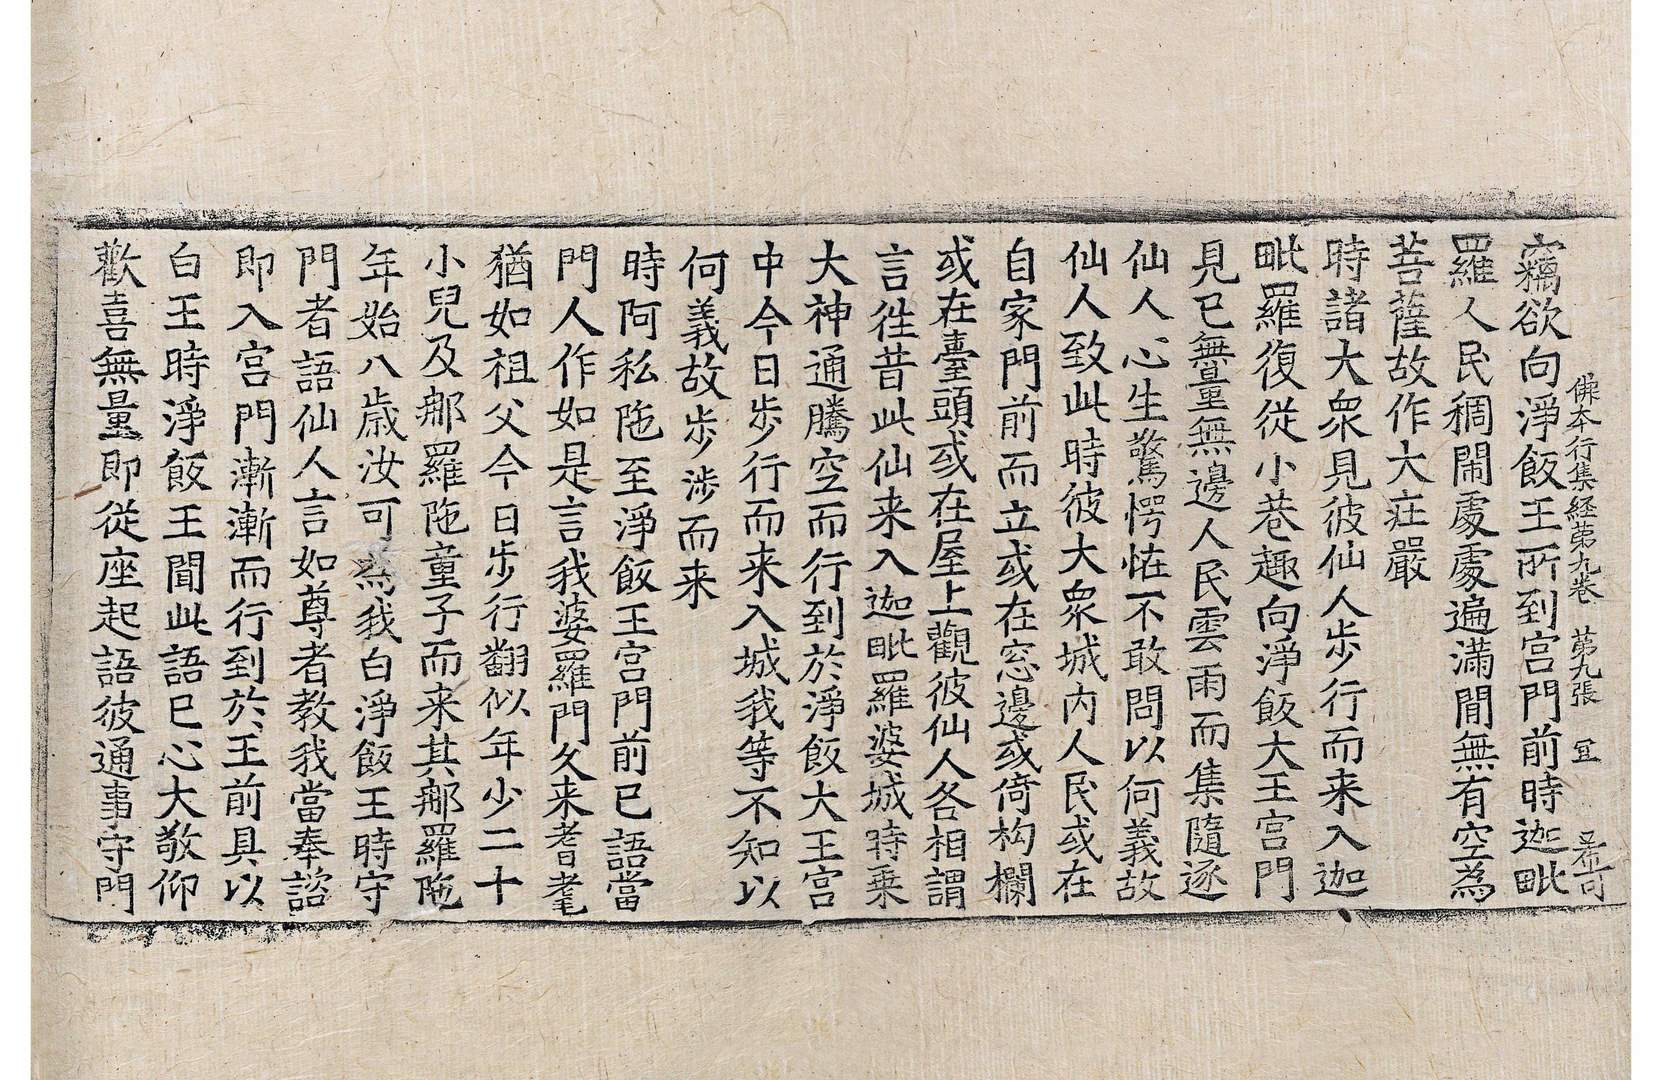 佛本行集経第九卷　第九張　冝
竊欲向淨飯王所到宮門前時迦毗
羅人民稠閙處處遍滿閒無有空為
菩薩故作大莊嚴
時諸大衆見彼仙人步行而来入迦
毗羅復從小巷趣向淨飯大王宮門
見已無量無邊人民雲雨而集隨逐
仙人心生驚愕恠不敢問以何義故
仙人致此時彼大衆城内人民或在
自家門前而立或在窓邊或倚构欄
或在臺頭或在屋上觀彼仙人各相謂
言徃昔此仙来入迦毗羅婆城時乗
大神通騰空而行到於淨飯大王宮
中今日步行而来入城我等不知以
何義故步涉而来
時阿私陁至淨飯王宮門前已語當
門人作如是言我婆羅門久来耆耄
猶如祖父今日步行翻似年少二十
小兒及郍羅陁童子而来其郍羅陁
年始八歳汝可為我白淨飯王時守
門者語仙人言如尊者教我當奉諮
即入宮門漸漸而行到於王前具以
白王時淨飯王聞此語已心大敬仰
歡喜無量即從座起語彼通事守門